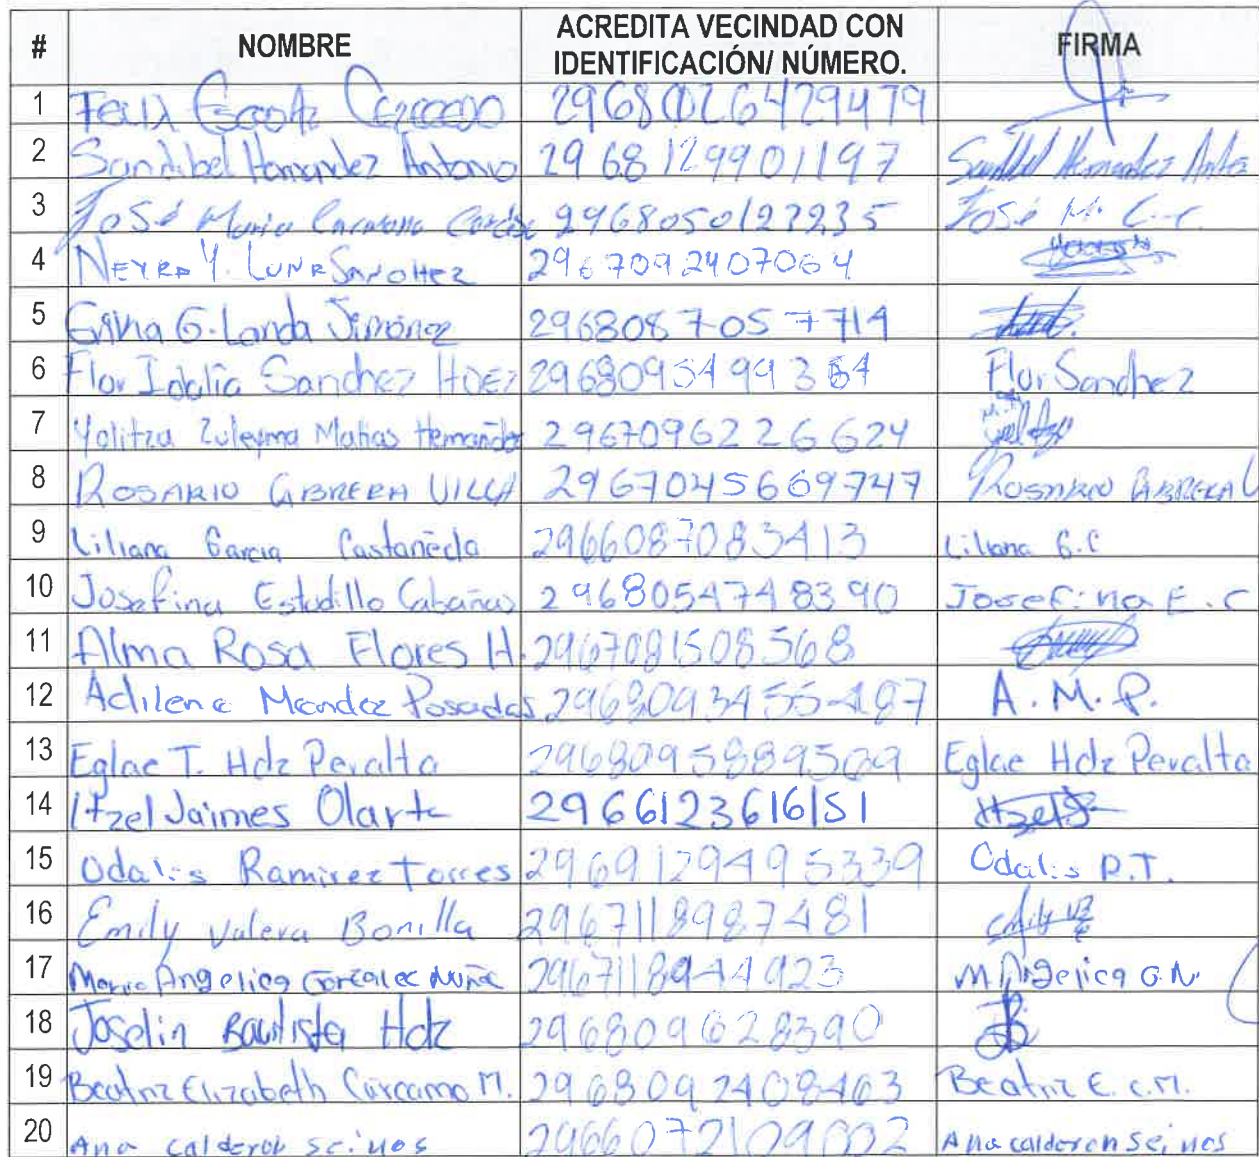 # NOMBRE ACREDITA VECINDAD CON IDENTIFICACIÓN/ NÚMERO. FIRMA
1 Felix 2968026429479
2 Sandibel Hernandez Antonio 2968129901197 Sandibel Hernandez Anto
3 José Maria 2968050123235 José M. C.C.
4 NEYRA Y. LUNA SANCHEZ 2967092407064
5 G. Landa Jimenez 2968087057714
6 Flor Idalia Sanchez Hdez 2968095499364 Flor Sanchez
7 Yolitza Zuleyma Matias Hernandez 2967096226624
8 ROSARIO CABRERA VILLA 2967045669747 ROSARIO CABRERA V
9 Liliana Garcia Castañeda 2966087083413 Liliana G.C
10 Josefina Estudillo Cabañas 2968054748390 Josefina E.C
11 Alma Rosa Flores H. 2967081508568
12 Adilene Mendez Posadas 2968093455487 A.M.P.
13 Eglae T. Hdz Peralta 2968095889509 Eglae Hdz Peralta
14 Itzel Jaimes Olarte 2966123616151
15 Odalis Ramirez Torres 2969129495339 Odalis R.T.
16 Emily Valera Bonilla 2967118987481
17 Maria Angelica Gonzalez Nuñe 2967118944923 M Angelica G.N.
18 Joselin Bautista Hdz 296809628390
19 Beatriz Elizabeth Carcamo M. 2968092408463 Beatriz E. C.M.
20 Ana calderon Seinos 2966072109002 Ana calderon Seinos